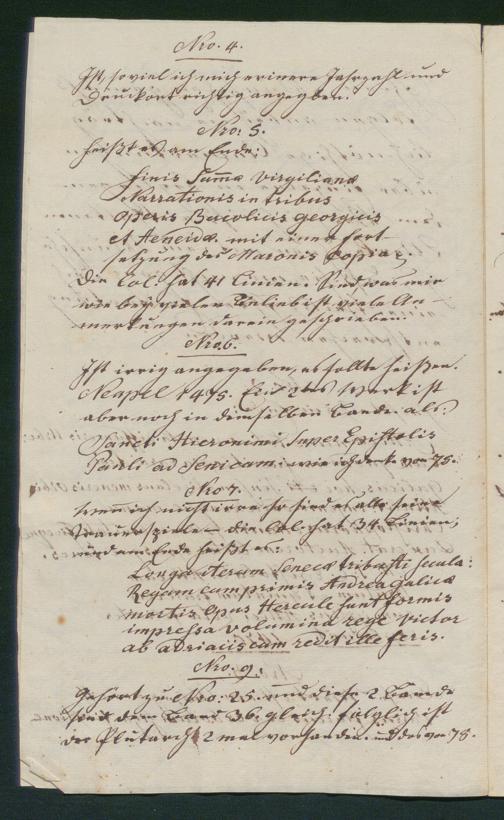 Nro. 4.
Ist, soviel ich mich erinere Jahrzahl und
Druckort richtig angegeben.
Nro: 5.
heißt es am Ende:
Finis Summæ Virgilianæ
Narrationis in tribus
Operis Bucolicis georgicis
et Aeneidæ. mit einer fort
setzung des Maronis Copiæ.
Die Col. hat 41 Linien. Sind was mir
wie bey vielen unlieb ist viele An-
merkungen darein geschrieben.
Nro 6.
Ist irrig angegeben, es sollte heißen.
Neapel 1475. Ein 2tes Werk ist
aber noch in demselben Bande als:
Sancti Hieronimi super Epistolis
Pauli ad Senicam: wie ich denke von 75.
Nro 7.
Wenn ich nicht irre so sind es alle seine
Trauerspiele – die Col. hat 34 Linien,
und am Ende heißt es
Longa iterum Senecæ tribuisti secula:
Regum cum primis Andrea galicæ
mortis opus Hercule sunt formis
impressa volumina rege victor
ab adriacis cum redit ille feris.
Nro. 9.
Gehört zu Nro: 25. und diese 2 Bande
sind dem Band 36. gleich. folglich ist
der Plutarch 2 mal vorhanden. und das von 78.